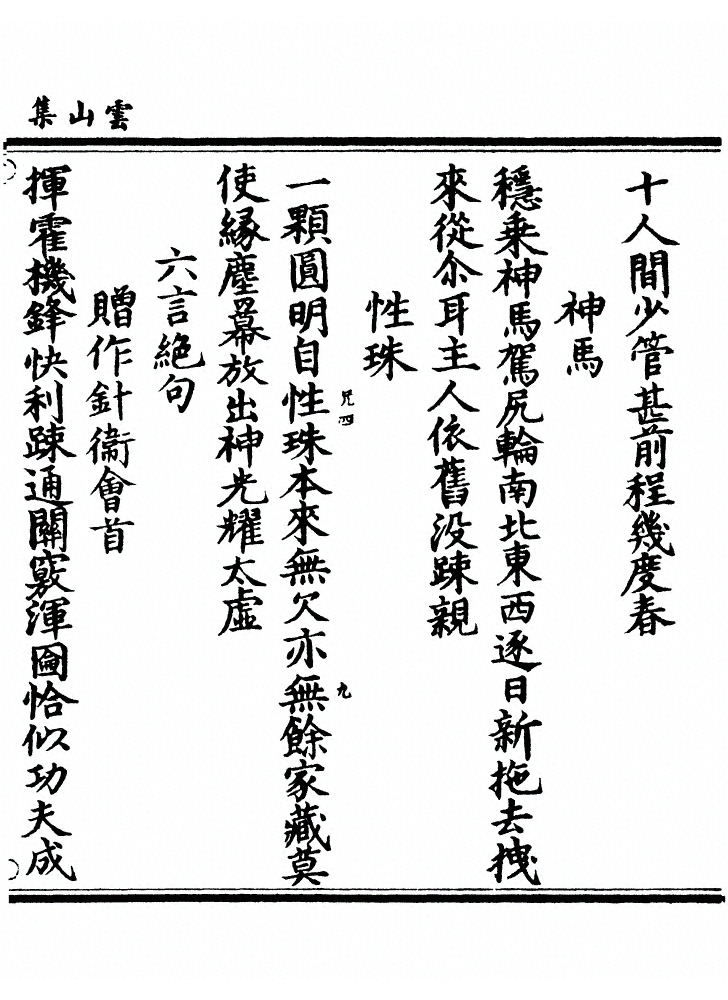 雲山集
十人間少管甚前程幾度春
神馬
穩乗神馬駕尻輪南北東西逐日新拖去拽
來從尒耳主人依舊没踈親
性珠
一顆圓明自性珠本來無欠亦無餘家藏莫
使緣塵羃放出神光耀太虛
六言絕句
贈作針衞會首
揮霍機鋒快利踈通關竅渾圇恰似功夫成
兄四
九